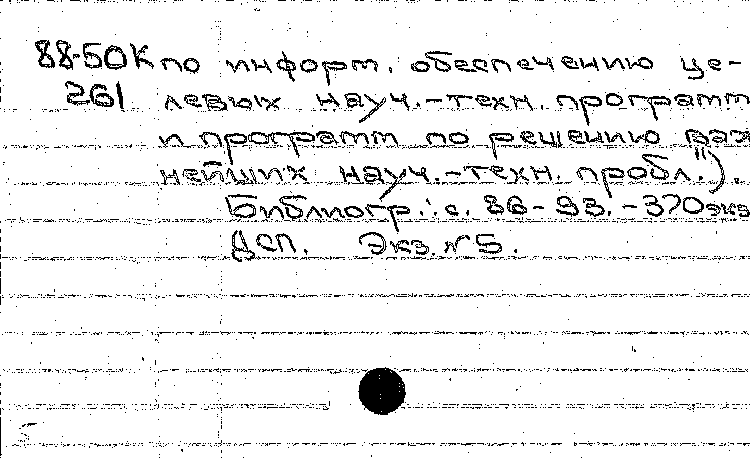 88-50К по информ. обеспечению це-
261 левых науч.-техн. программ
и программ по решению важ
нейших науч.-техн. пробл.").
Библиогр.: с. 86-93. - 370 экз
Дсп. Экз. №5.
5